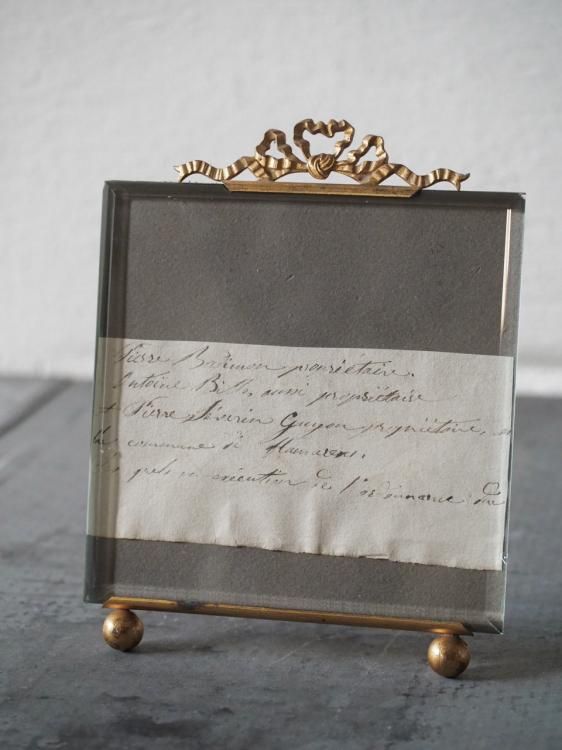 Pierre Barimon propriétaire.
Antoine Billes aussi propriétaire
et Pierre Séverin Guyon propriétaire,
la commune de
quels en exécution de l'ordonnance du